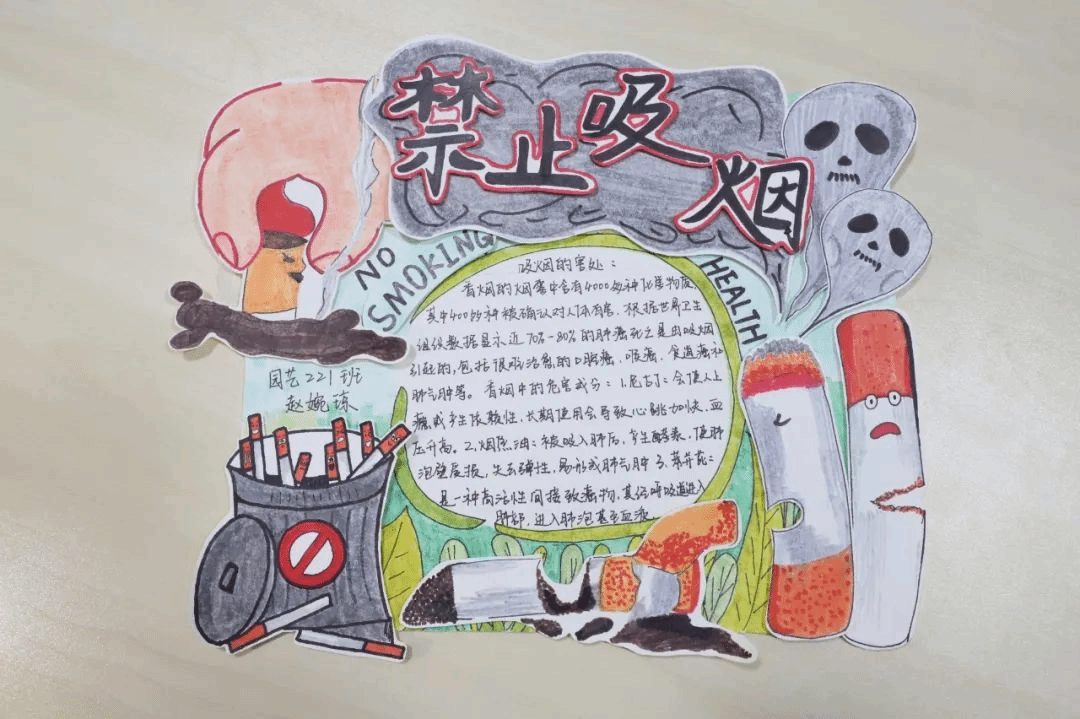 禁止吸烟
NO
SMOKING
HEALTH
吸烟的害处：
香烟的烟雾中含有4000多种化学物质，
其中400多种被确认对人体有害，根据世界卫生
组织数据显示近70%-80%的肺癌死亡是由吸烟
引起的，包括很难治愈的口腔癌，喉癌，食道癌和
肺气肿等。香烟中的危害成分：1.尼古丁：会使人上
瘾或产生依赖性，长期使用会导致心跳加快，血
压升高。2.烟焦油：被吸入肺后，产生酵素，使肺
泡壁受损，失去弹性，易形成肺气肿3.苯并芘：
是一种高活性间接致癌物，其经呼吸道进入
肺部，进入肺泡甚至血液
园艺221班
赵婉